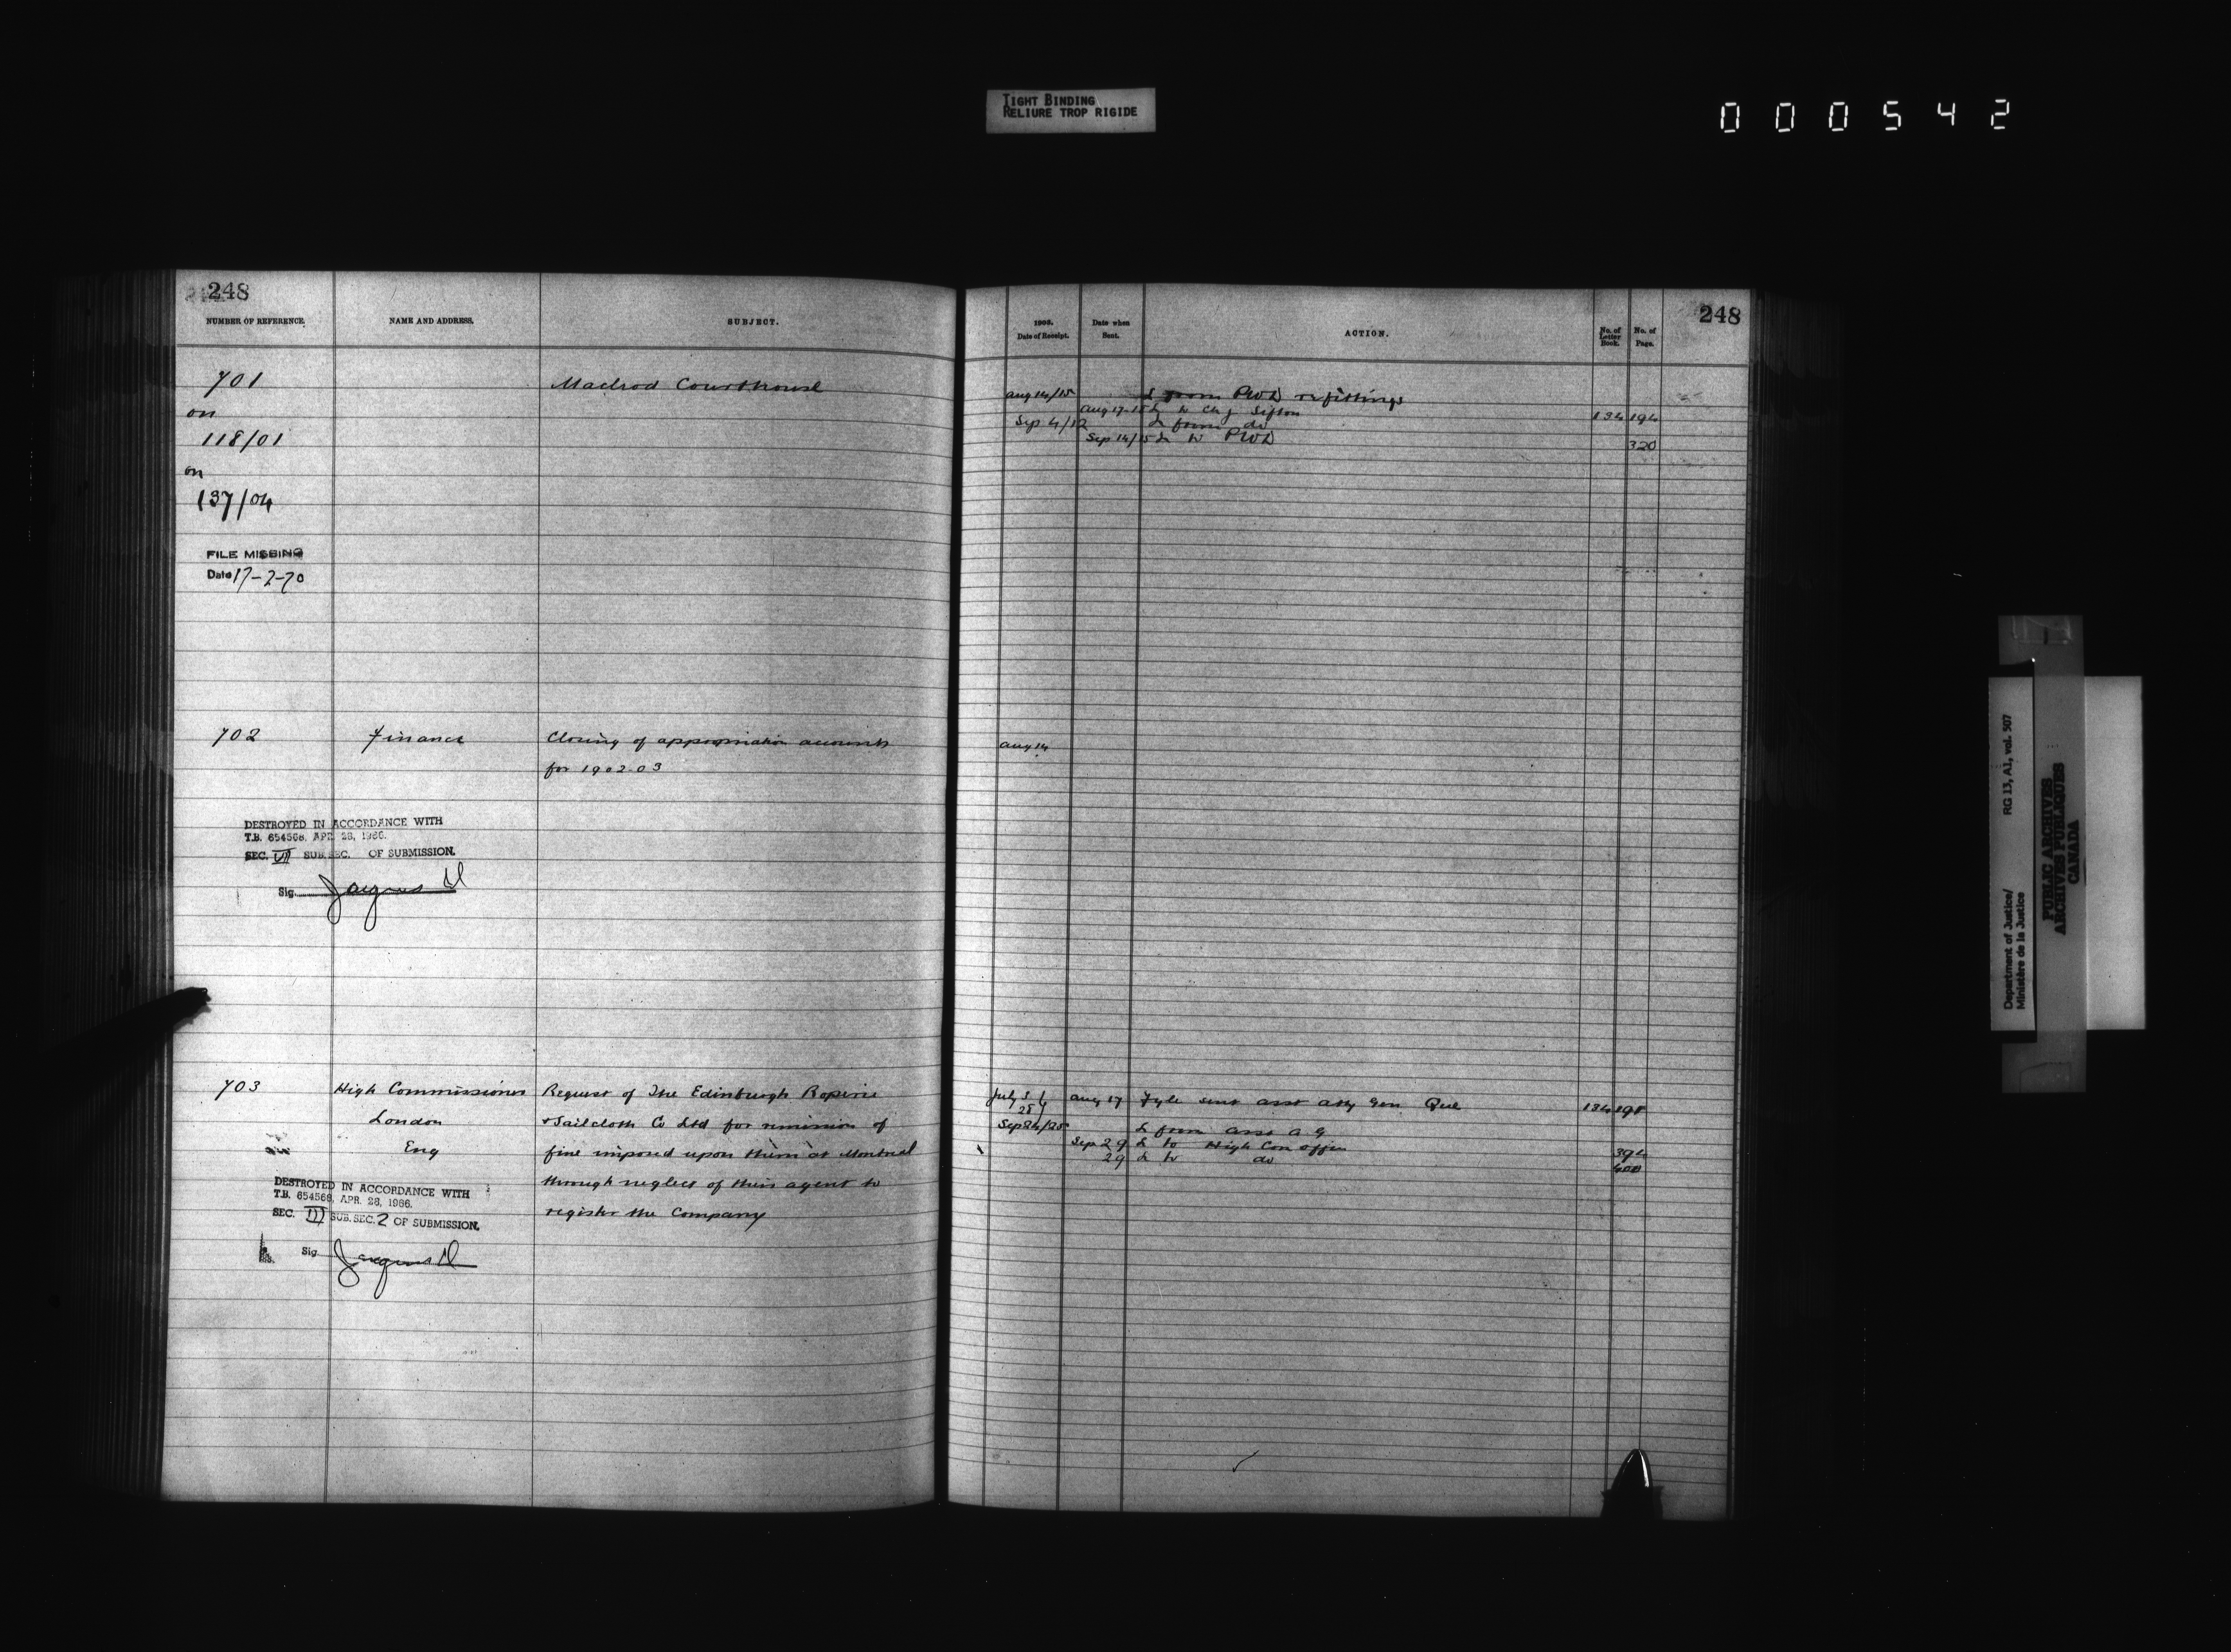 TIGHT BINDING
RELIURE TROP RIGIDE
000542
248
NUMBER OF REFERENCE.
NAME AND ADDRESS.
SUBJECT.
701
on
118/01
on
137/04
Macleod Courthouse
FILE MISSING
Date 17-2-70
702
Finance
Closing of appropriation accounts
for 1902-03
DESTROYED IN ACCORDANCE WITH
T.B. 654568, APR. 28, 1966.
SEC. VII SUB. SEC. OF SUBMISSION.
Sig.
703
High Commissioner
London
Eng
Request of The Edinburgh Roperie
& Sailcloth Co Ltd for remission of
fine imposed upon them at Montreal
through neglect of their agent to
register the Company
DESTROYED IN ACCORDANCE WITH
T.B. 654568, APR. 28, 1966.
SEC. III SUB. SEC. 2 OF SUBMISSION.
Sig
248
1903.
Date of Receipt.
Date when
Sent.
ACTION.
No. of
Letter
Book.
No. of
Page.
Aug 14/15 L from PWD re fittings
Aug 17-18 L to Ch J Sifton 134 194
Sep 4/12 L from do
Sep 14/15 L to PWD 320
Aug 14
July 3
28
Aug 17 Fyle sent asst atty Gen Que 134 198
Sep 24/25 L from asst A G
Sep 29 L to High Com offin 394
29 L to do 400
Department of Justice/
Ministère de la Justice
RG 13, A1, vol. 507
PUBLIC ARCHIVES
ARCHIVES PUBLIQUES
CANADA